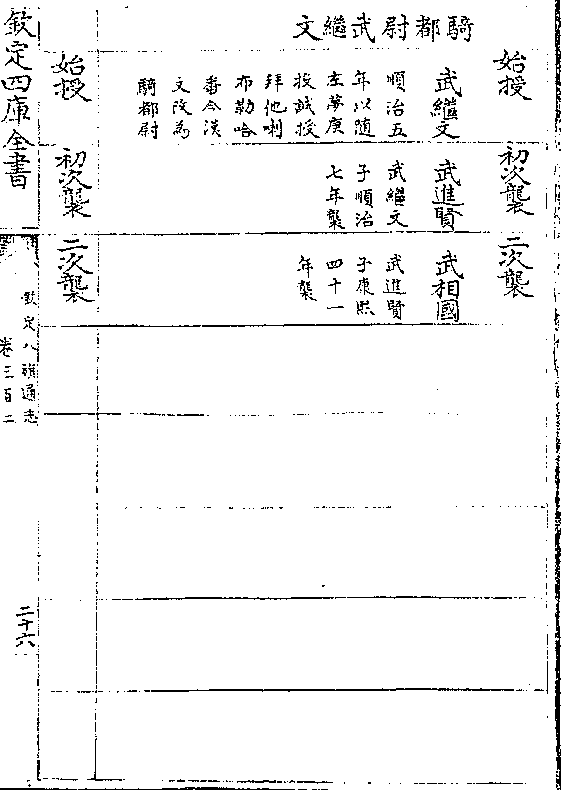 騎都尉武繼文
始授
初次襲
二次襲
武繼文
順治五
年以隨
左夢庚
投誠授
拜他喇
布勒哈
番今漢
文改為
騎都尉
武進賢
武繼文
子順治
七年襲
武相國
武進賢
子康熙
四十一
年襲
始授
初次襲
二次襲
欽定四庫全書
欽定八旗通志
卷三百二
二十六